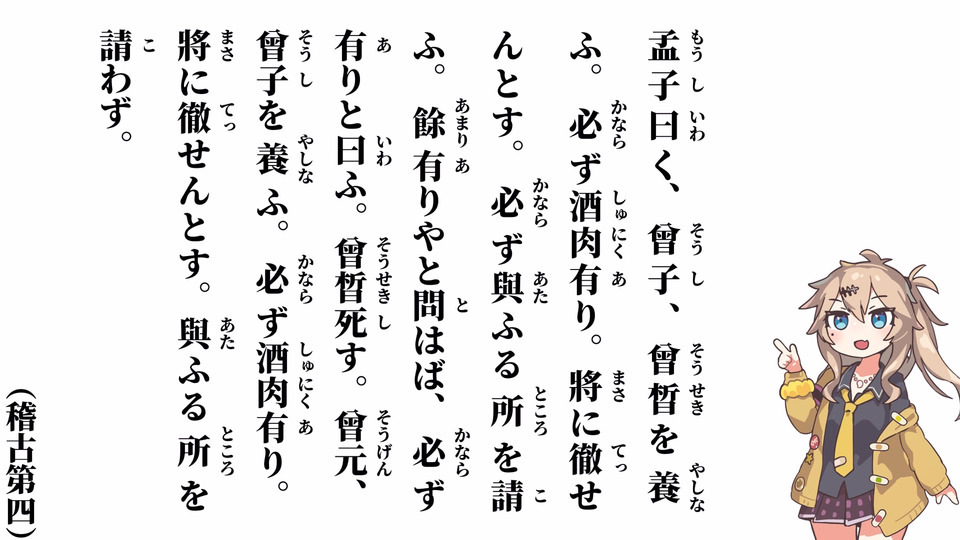 孟子曰く、曾子、曾晳を養
ふ。必ず酒肉有り。將に徹せ
んとす。必ず與ふる所を請
ふ。餘有りやと問はば、必ず
有りと曰ふ。曾晳死す。曾元、
曾子を養ふ。必ず酒肉有り。
將に徹せんとす。與ふる所を
請わず。
(稽古第四)